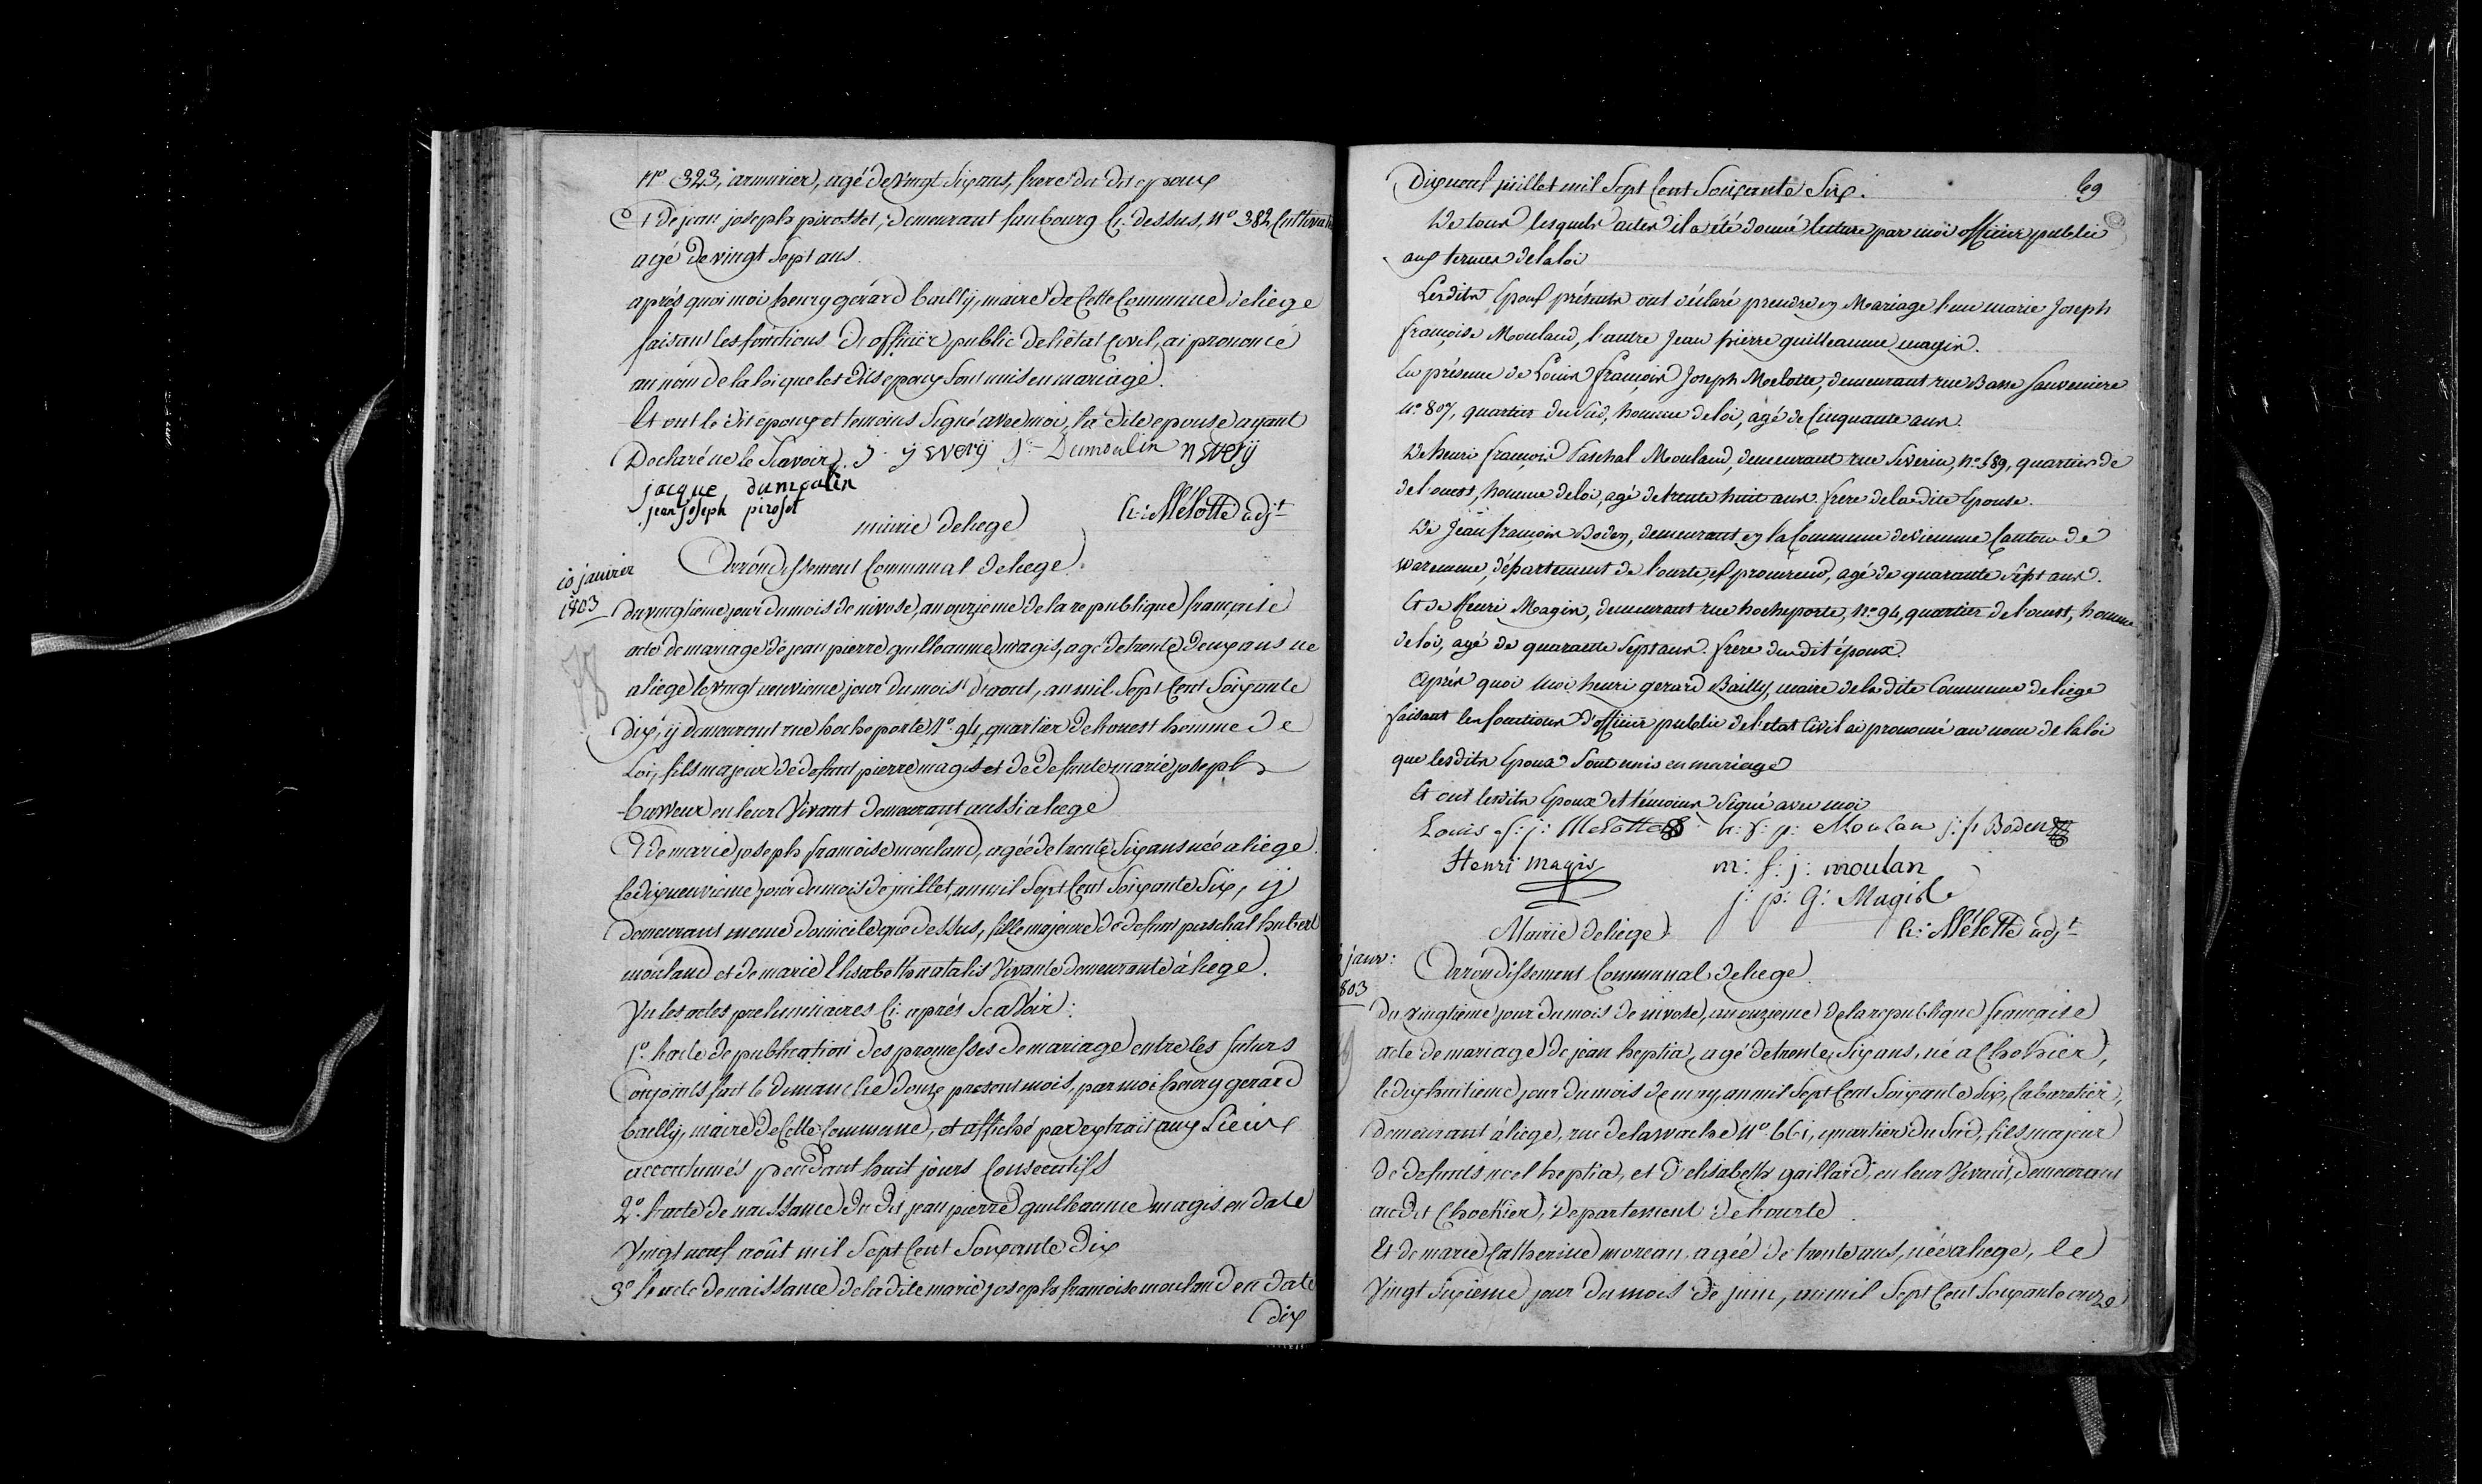 N° 323, armurier, agé de vingt six ans, frere du dit epoux
Et de jean joseph pirottet, demeurant faubourg Ci: dessus, N° 382, Cultivateur
agé de vingt Sept ans.
aprés quoi moi henry gérard bailly, maire de Cette Commune de liege
faisant les fonctions d'officier public de l'état Civil, ai prononcé
au nom de la loi que les dits epoux Sont unis en mariage.
Et ont le dit epoux et temoins Signé avec moi, la dite epouse ayant
Declaré ne le Scavoir. J. y swerij Dumoulin n swerij
jacque dumoulin
jean joseph pirotet
h: Mélotte adj.t
mairie de liege
10 janvier
1803
Arrondissement Communal de liege.
du vingtieme jour du mois de nivose, an onzieme de la republique française
acte de mariage de jean pierre guilleaume magis, agé de trente Deux ans né
a liege le vingt neuvieme jour du mois d'aout, an mil Sept Cent Soixante
dix, ij demeurant rue hocheporte N° 94, quartier de l'ouest homme de
Loi, fils majeur de defunt pierre magis et de defunte marie joseph
en leur Vivant demeurant aussi a liege
Et de marie joseph françoise mouland, agée de trente Six ans née a liege
le dix neuvieme jour du mois de juillet, an mil Sept Cent Soixante Six, ij
demeurant meme domicile que dessus, fille majeure de defunt paschal hubert
mouland et de marie Elisabeth natalis Vivante demeurante à liege.
Vu les actes preliminaires Ci: aprés Scavoir:
1° l'acte de publication des promesses de mariage entre les futurs
Conjoints fait le dimanche douze present mois, par moi henry gerard
bailly, maire de Cette Commune, et affiché par extrait aux Lieux
accoutumés pendant huit jours Consecutifs
2° l'acte de naissance du dit jean pierre guilleaume magis en date
Vingt neuf août mil Sept Cent Soixante dix
3° l'acte de naissance de la dite marie joseph françoise mouland en date
dix
69
Dix neuf juillet mil Sept Cent Soixante Six.
De tous lesquels actes il a été donné lecture par moi officier public
aux termes de la loi
Les dits Epoux présents ont déclaré prendre en Mariage l'un marie Joseph
françoise Mouland, l'autre Jean pierre guilleaume magis.
En présence de Louis françois Joseph Melotte, demeurant rue Basse Sauveniere
N° 807, quartier du Sud, homme de loi, agé de Cinquante ans.
De henri françois Paschal Mouland, demeurant rue Severin, N° 589, quartier de
de l'ouest, homme de loi, agé de trente huit ans. frere de la dite Epouse.
De Jean françois Boden, demeurant en la Commune de viemme Canton de
waremme, département de l'ourte, agé de quarante Sept ans.
Et de Henri Magis, demeurant rue hocheporte, N° 94, quartier de l'ouest, homme
de loi, agé de quarante Sept ans. frere du dit époux.
Après quoi moi henri gerard Bailly, maire de la dite Commune de liege
faisant les fonctions d'officier public de l'etat Civil ai prononcé au nom de la loi
que les dits Epoux Sont unis en mariage
Et ont lesdits Epoux et témoins Signé avec moi
Louis f: j: Melotte h: f: p: Moulan j: f Boden
Henri magis m: f: j: moulan
j: p: G: Magis
Mairie de liege h: Mélotte adj.t
janv:
803
Arrondissement Communal de liege
du vingtieme jour du mois de nivose, an onzieme de la republique française
acte de mariage de jean heptia, agé de trente Six ans, né a Chokier,
le dix huitieme jour du mois de may, an mil Sept Cent Soixante Six, Cabaretier,
demeurant à liege, rue de la wache N° 661, quartier du Sud, fils majeur
de defunts noel heptia, et d'elisabeth gaillard, en leur Vivant, demeurans
audit Chokier, departement de l'ourte
Et de marie Catherine moreau, agée de trente ans, née a liege, le
Vingt Sixieme jour du mois de juin, an mil Sept Cent Soixante onze